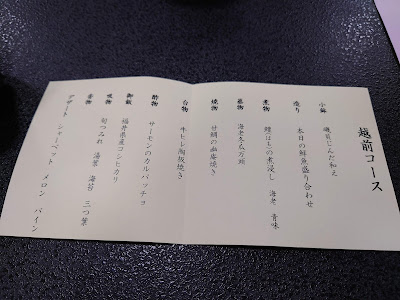 越前コース
小鉢 磯貝じんだ和え
造り 本日の鮮魚盛り合わせ
煮物 はもの煮浸し 海老 青味
蒸物 海老冬瓜万頭
焼物 甘鯛の幽庵焼き
台物 牛ヒレ陶板焼き
酢物 サーモンのカルパッチョ
御飯 福井県産コシヒカリ
吸物 旬つみれ 湯葉 海苔 三つ葉
香物
デザート シャーベット メロン パイン